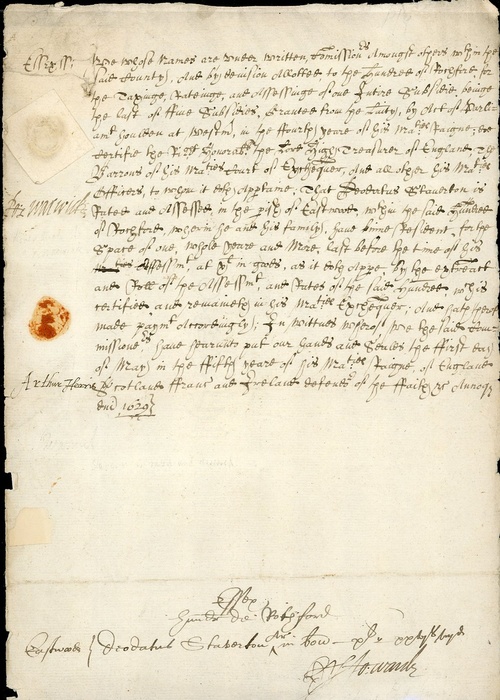 Essex ss: Wee whose Names are under written, Comissionrs Amongst others within the
said County, And by devision Allotted to the Hundred of Rochford for
the Taxinge, Rateinge, and Assessinge of one Intire Subsidie, beinge
the last of ffive Subsidies, Graunted from the Laity, by Act of Parli-
amt houlden at Westm, in the ffourth yeare of his Maties Raigne, doe
Certifie the Right Honorable the Lord High Treasurer of England, The
Barrons of his Maties Court of Exchequer, And all other his Maties
Officers, to whom it doth Apptaine, That Deodatus Staverton is
Rated and Assessed, in the pish of Eastwood, within the said Hundred
of Rochford, wherin he and his family, have bine Resident, for the
Space of one, whole yeare and More, last before the time of his
Assessmt, at in goods, as it doth Appe, by the extract
and Roll of the Assessmt, and Rates of the said Hundred
certified, and remaineth in his Maties Exchequer; And hath thereof
made paymt Accordingly; In wittnes whereof wee the said Com-
missionrs have hereunto put our hands and Seales the ffirst day
of May, in the ffifth yeare of his Maties Raigne, of England
Arthur Harris Scotland ffranc and Ireland defendr of the ffaith &c Annoq
dni 1629
Essex
Hundr de Rochford
Eastwood Deodatus Staverton in bon